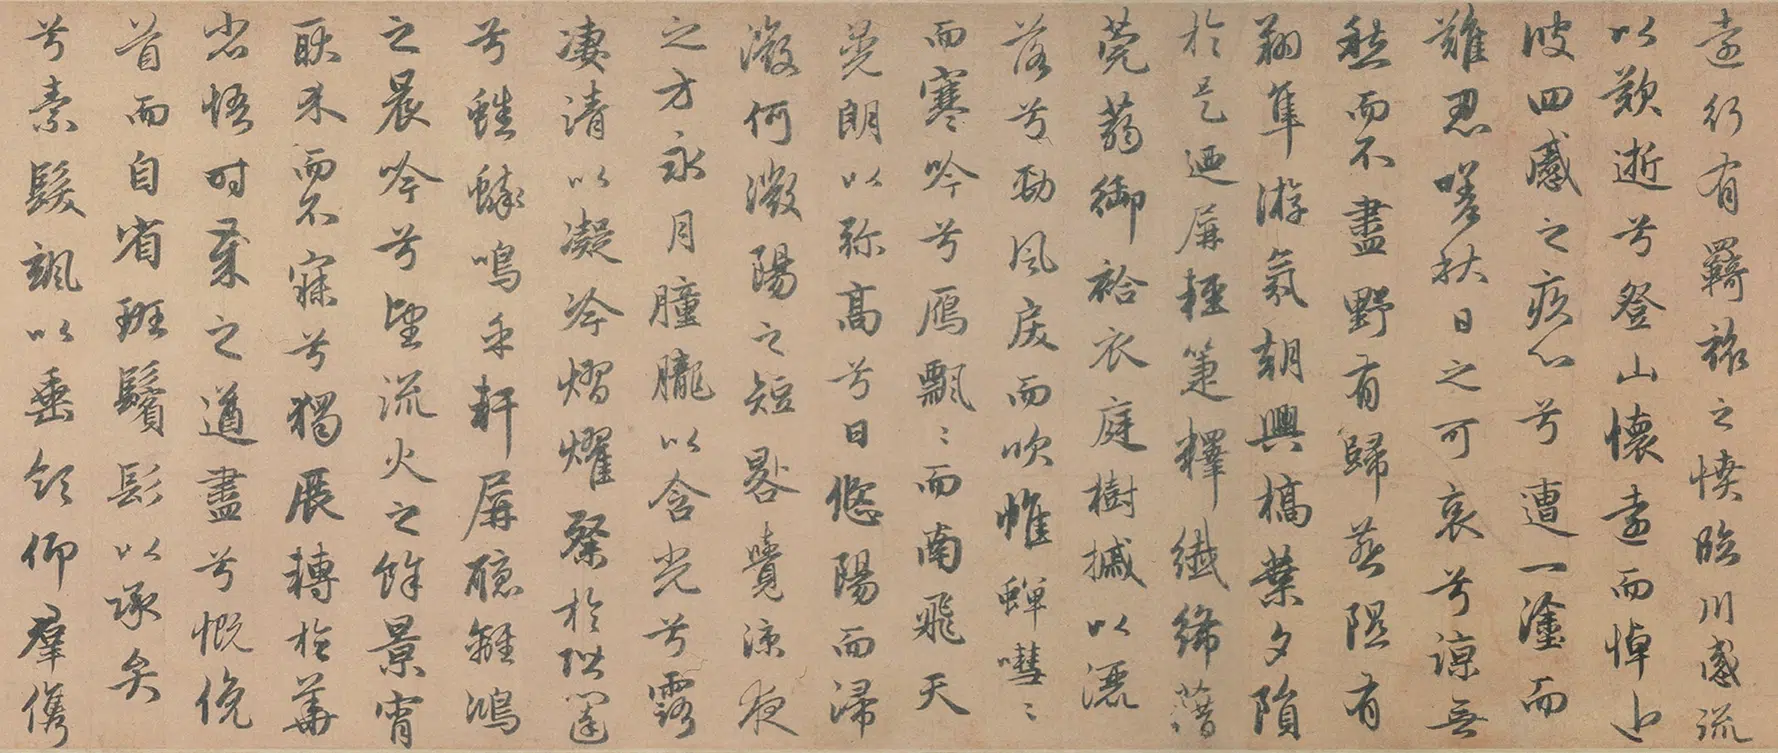 遠行有羈旅之憤臨川感流
以歎逝兮登山懷遠而悼近
彼四慼之疚心兮遭一塗而
難忍嗟秋日之可哀兮諒無
愁而不盡野有歸燕隰有
翔隼游氛朝興槁葉夕隕
於是迺屏輕箑釋纖絺藉
莞蒻御袷衣庭樹摵以灑
落兮勁風戾而吹帷蟬嘒〻
而寒吟兮雁飄〻而南飛天
晃朗以彌高兮日悠陽而浸
微何微陽之短晷覺涼夜
之方永月朣朧以含光兮露
凄清以凝冷熠燿粲於階闥
兮蟋蟀鳴乎軒屏聽離鴻
之晨吟兮望流火之餘景宵
耿介而不寐兮獨展轉於華
省悟時歲之遒盡兮慨俛
首而自省斑鬢髟以承弁
兮素髮颯以垂領仰群儁